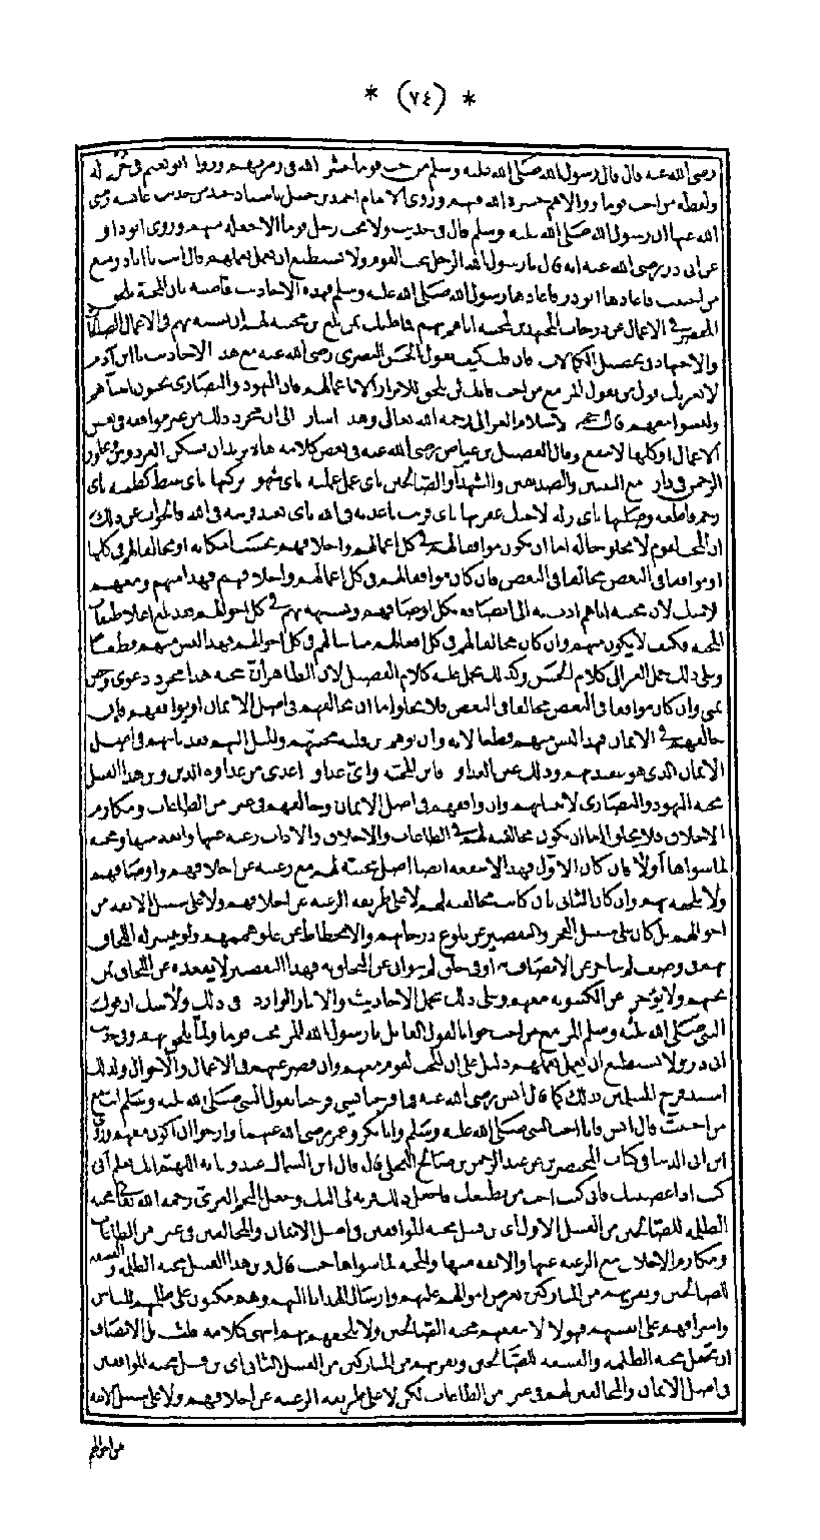 * (٧٤) *
رضي الله عنه قال قال رسول الله صلى الله عليه وسلم من حب قوما حشر الله في زمرتهم وروا ابو نعيم في له
ولفظه من احب قوما ووالاهم حشره الله فيهم وروى الامام احمد بن حنبل باسناد جيد من حديث عائشة رضي
الله عنها ان رسول الله صلى الله عليه وسلم قال في حديث ولا يحب رجل قوما الا جعله منهم وروى ابو داو
عن ابى ذر رضي الله عنه انه قال يا رسول الله الرجل يحب القوم ولا يستطيع ان يعمل بعملهم قال انت يا اباذر مع
من احببت فاعادها ابو ذر فاعادها رسول الله صلى الله عليه وسلم فهذه الاحاديث قاضية بان المحبة تلحق
المقصر في الاعمال عن درجات المجتهدين لمحبة اياهم بهم
والاجتهاد في تحصيل الكمالات فان قلت كيف يقول الحسن البصرى رضي الله عنه مع هذ الاحاديث يا ابن آدم
لا يغرنك قول من يقول المر مع من احب فانك لن تلحق الابرار الا باعمالهم فان اليهود والنصارى يحبون انبيآهم
وليسوا معهم قال الاسلام الغزالى رحمه الله تعالى وهذ اشار الى ان مجرد ذلك من غير موافقة في بعض
الاعمال او كلها لا ينفع وقال الفضيل بن عياض رضي الله عنه في بعض كلامه هاه تريد ان تسكن الفردوس وتجاور
الرحمن في دار مع النبيين والصديقين والشهدآ والصالحين باى عمل عمله باى شهو تركتها باى غيظ كظمته باى
رحم قاطعة وصلتها باى زلة لاخيك غفرتها باى قريب باعدته في الله باى بعيد قربته في الله فالجواب عن ذلك
ان المحب لقوم لا يخلو حاله اما ان يكون موافقا لهم في كل اعمالهم واخلاقهم بحسب امكانه او مخالفا لهم في كلها
او موافقا في البعض مخالفا في البعض فان كان موافقا لهم في كل اعمالهم واخلاقهم فهذا منهم ومعهم
لا شك لان محبة اياهم ادته الى اتصافه بكل اوصافهم وتشبهه بهم في كل احوالهم فقد بلغ اعلا طبقات
المحبة فكيف لا يكون منهم وان كان مخالفا لهم في كل افعالهم مباينا لهم في كل احوالهم فهذا ليس منهم قطعا
وعلى ذلك حمل الغزالى كلام الحسن وكذلك يحمل عليه كلام الفضيل لان الظاهر ان محبة هذا مجرد دعوى
تمنى وان كان موافقا في البعض مخالفا في البعض فلا يخلوا اما ان يخالفهم في اصل الايمان او يوافقهم فان
خالفهم في الايمان فهذا ليس منهم قطعا لانه وان توهم من قلبه محبتهم والميل اليهم فقد باينهم في اصل
الايمان الذى هو بعيدهم وذلك عين العداو فاين المحبة واى عداو اعدى من عداوة الدين ومن هذا القبيل
محبة اليهود والنصارى لانبيائهم وان وافقهم في اصل الايمان وخالفهم في غير من الطاعات ومكارم
الاخلاق فلا يخلو اما ان يكون مخالفته لهم في الطاعات والاخلاق والاداب رغبة عنها وانفة منها ومحبة
لما سواها اولا فان كان الاول فهذا لا تنفعه ايضا اصل محبته لهم مع رغبته عن اخلاقهم واوصافهم
ولا يلحقه بهم وان كان الثانى بان كانت مخالفته لهم لا على طريقة الرغبة عن اخلاقهم ولا على سبيل الانفة من
احوالهم بل كان على سبيل العجز والتقصير عن بلوغ درجاتهم والانحطاط عن علو هممهم ولو تيسر له اللحاق
بهم في وصف لم يتاخر عن الاتصاف به او في حلى لم يتوان عن التحلى به فهذا التقصير لا يقعده عن اللحاق بمن
يحبهم ولا يؤخر عن الكينونة معهم وعلى ذلك تحمل الاحاديث والاثار الوارد في ذلك ولا شك ان قول
النبي صلى الله عليه وسلم المر مع من احب جوابا لقول القايل يا رسول الله المر يحب قوما ولما يلحق بهم وفي حديث
ابى ذر ولا يستطيع ان يعمل بعملهم دليل على ان المحب لقوم معهم وان قصر عنهم في الاعمال والاحوال ولذلك
اشتد فرح المسلمين بذلك كما قال انس رضي الله عنه فما فرحنا بشي فرحنا بقول النبي صلى الله عليه وسلم انت مع
من احببت قال انس فانا احب النبي صلى الله عليه وسلم وابا بكر وعمر رضي الله عنهما وارجو ان اكون معهم وروى
ابن ابى الدنيا في كتاب المحتضرين عن عبد الرحمن بن صالح العجلى قال قال ابن السماك عند وفاته اللهم انك تعلم انى
كنت اذا عصيتك فانى كنت احب من يطيعك فاجعل ذلك قربة لى اليك وجعل النجم الغزى رحمه الله تعالى محبة
الظلمة للصالحين من القسم الاول اى من قبيل محبة الموافقين في اصل الايمان والمخالفين في غير من الطاعات
ومكارم الاخلاق مع الرغبة عنها والانفة منها والمحبة لما سواها حيث قال ومن هذا القبيل محبة الظلمة والفسقة
للصالحين وتقربهم من المباركين بعرض اموالهم عليهم وارسال الهدايا اليهم وهم مكبون على ظلمهم للناس
واسرافهم على انفسهم فهولا لا تنفعهم محبة الصالحين ولا تلحقهم بهم انتهى كلامه قلت بل الانصاف
ان تجعل محبة الظلمة والفسقة للصالحين وتقربهم من المباركين من القسم الثانى اى من قبيل محبة الموافقين
في اصل الايمان والمخالفين لهم في غير من الطاعات لكن لا على طريقة الرغبة عن اخلاقهم ولا على سبيل الانفة
من احوالهم